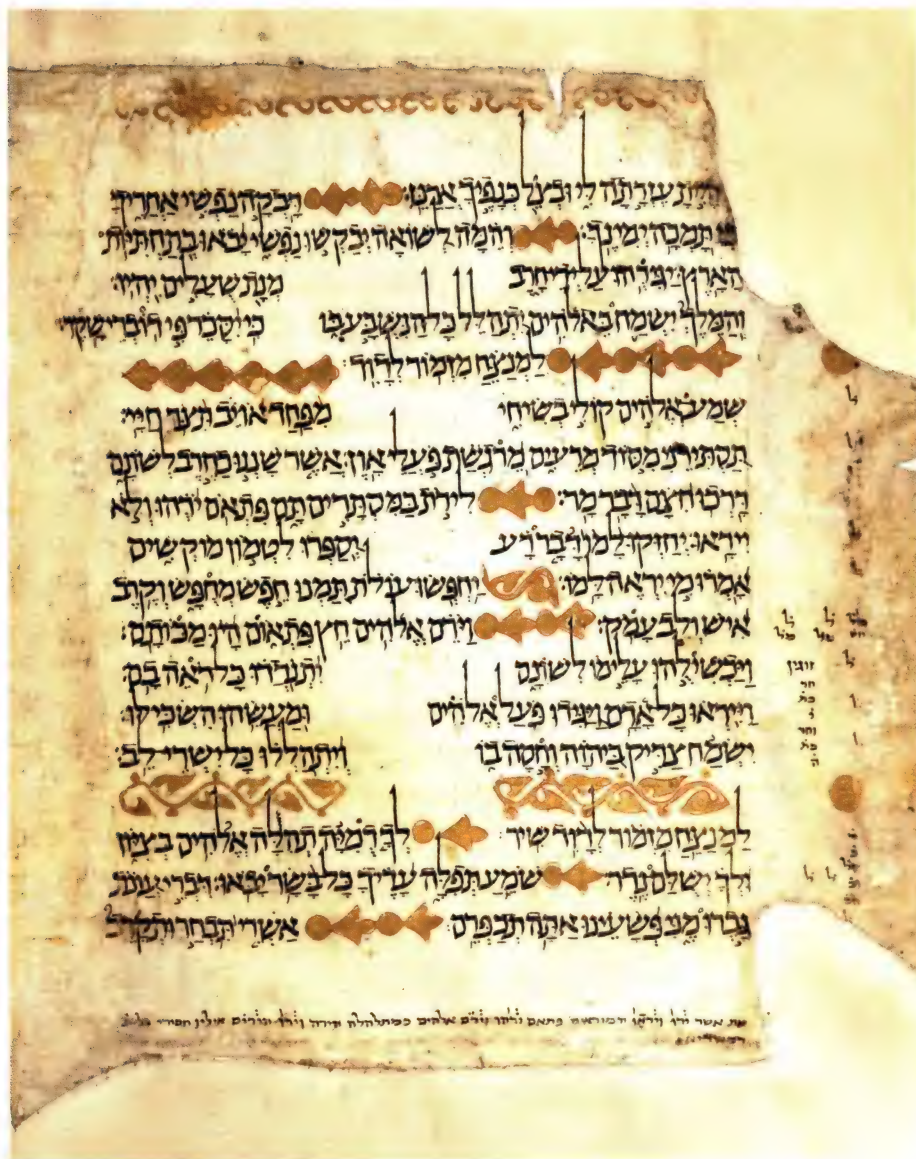 היית עזרתה לי ובצל כנפיך ארנן: דבקה נפשי אחריך
תמכה ימינך: והמה לשואה יבקשו נפשי יבאו בתחתיות
הארץ: יגירהו על ידי חרב מנת שעלים יהיו:
והמלך ישמח באלהים יתהלל כל הנשבע בו כי יסכר פי דוברי שקר:
למנצח מזמור לדוד:
שמע אלהים קולי בשיחי מפחד אויב תצר חיי:
תסתירני מסוד מרעים מרגשת פעלי און: אשר שננו כחרב לשונם
דרכו חצם דבר מר: לירת במסתרים תם פתאם ירהו ולא
ייראו: יחזקו למו דבר רע יספרו לטמון מוקשים
אמרו מי יראה למו: יחפשו עולת תמנו חפש מחפש וקרב
איש ולב עמק: וירם אלהים חץ פתאום היו מכותם:
ויכשילהו עלימו לשונם יתנדדו כל ראה בם:
וייראו כל אדם ויגידו פעל אלהים ומעשהו השכילו:
ישמח צדיק ביהוה וחסה בו ויתהללו כל ישרי לב:
למנצח מזמור לדוד שיר לך דמיה תהלה אלהים בציון
ולך ישלם נדר: שמע תפלה עדיך כל בשר יבאו: דברי עונת
גברו מני פשעינו אתה תכפרם אשרי תבחר ותקרב